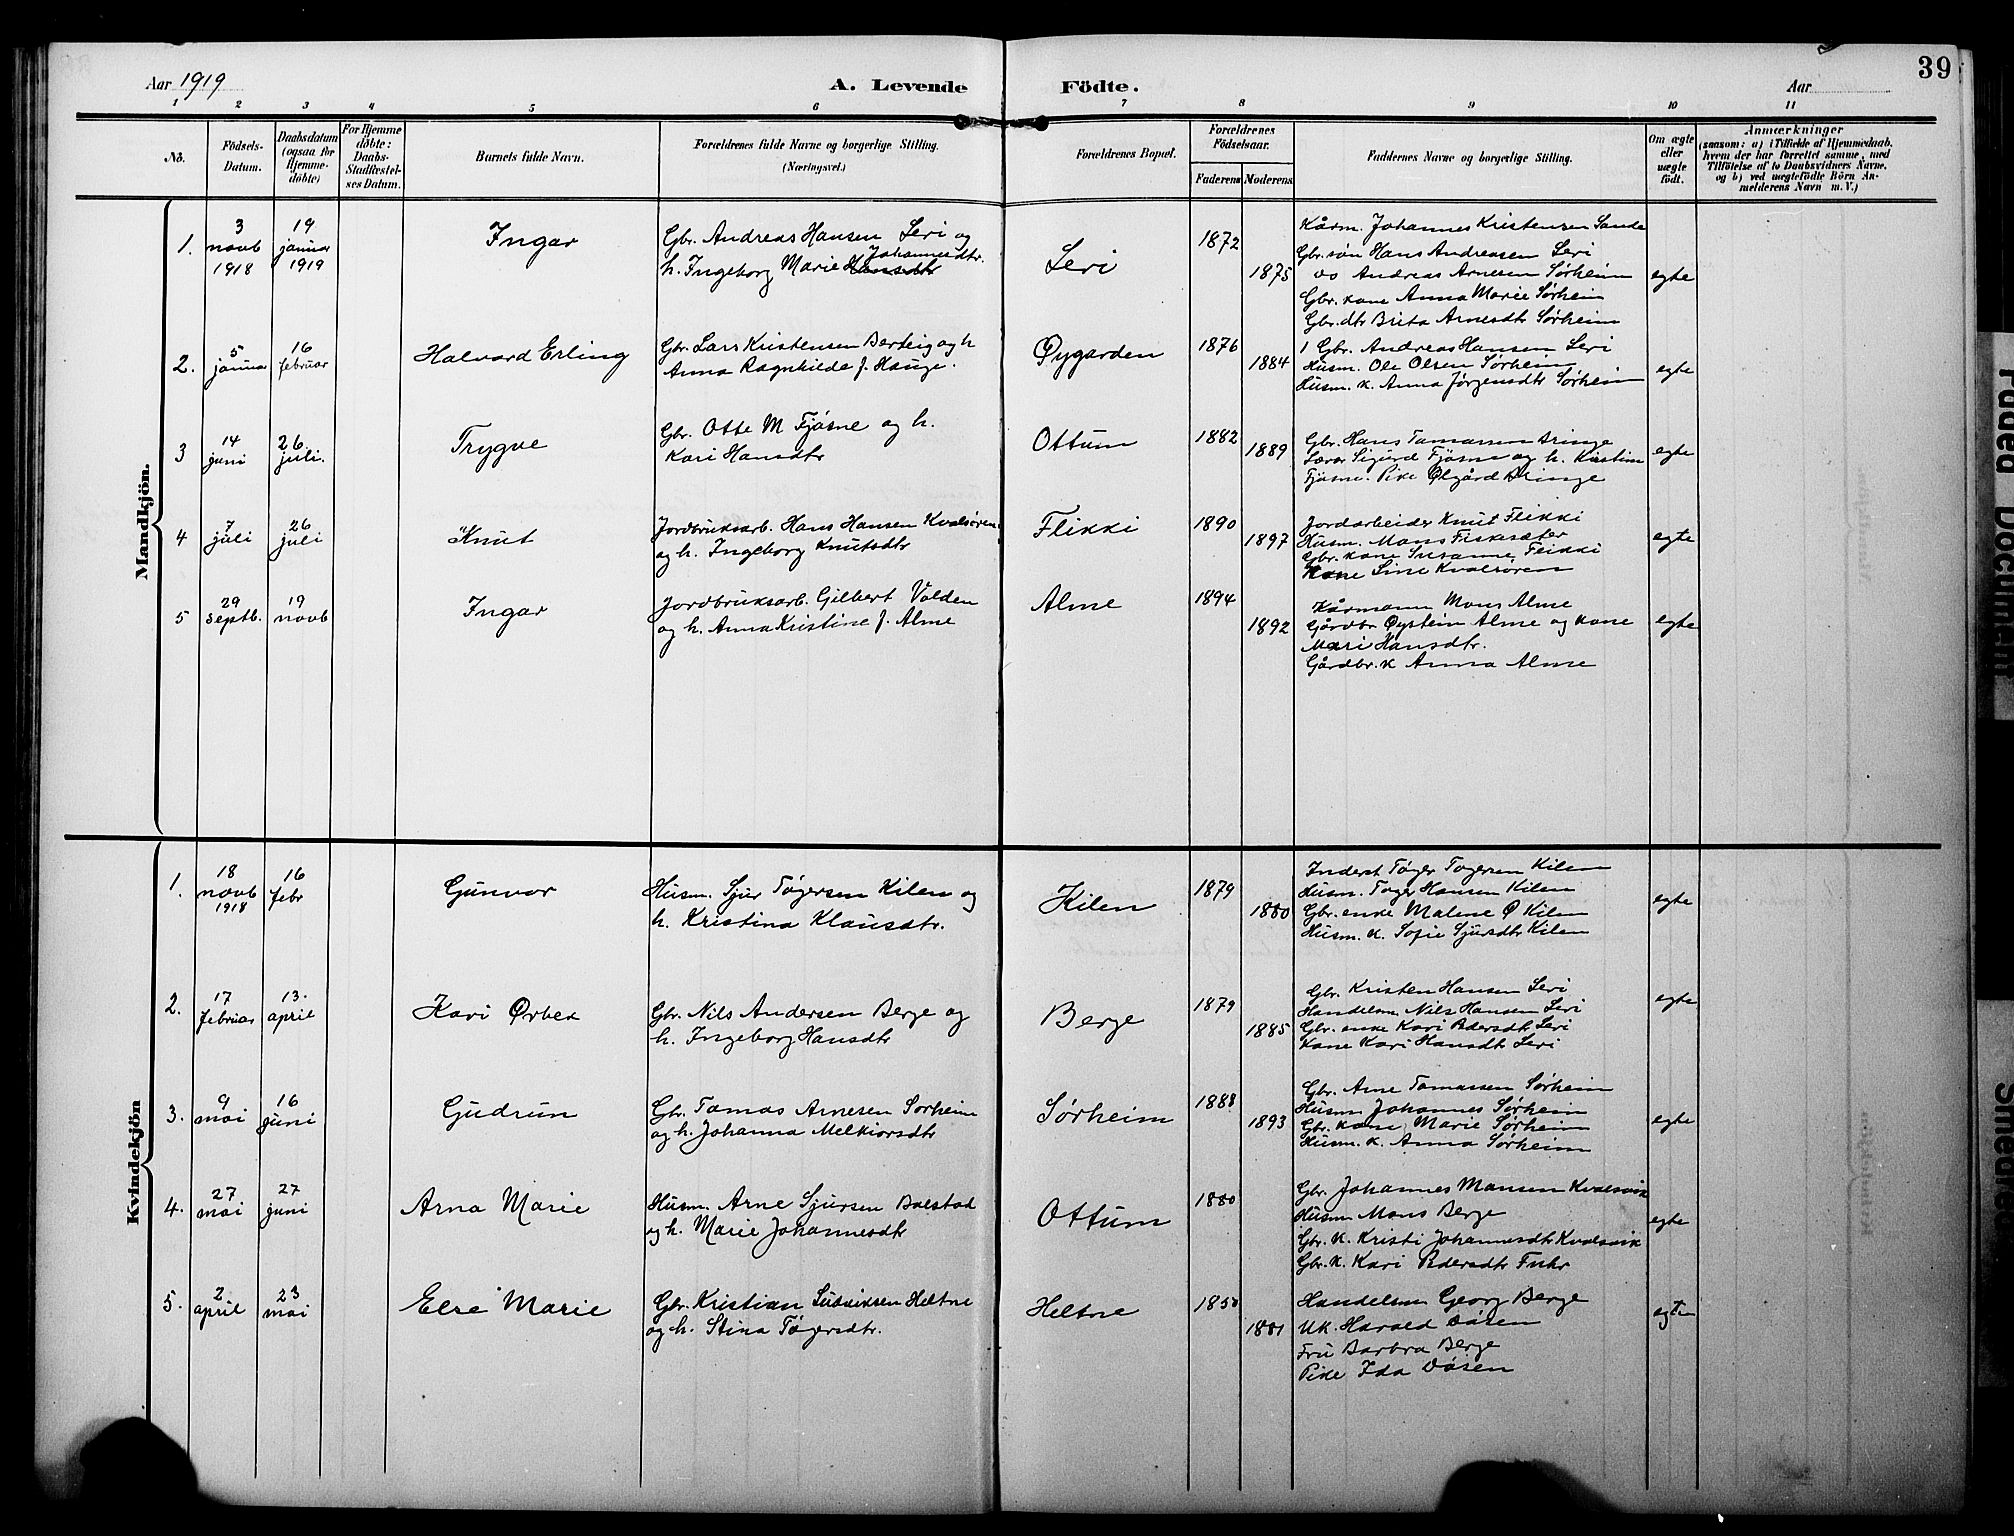 39
Aar 1919
A. Levende Födte.
Aar
1 2 3 4 5 6 7 8 9 10 11
No.
Födsels-Datum.
Daabsdatum (ogsaa for Hjemme-döbte)
For Hjemme döbte: Daabs-Stadfæstel-ses Datum.
Barnets fulde Navn.
Forældrenes fulde Navne og borgerlige Stilling. (Næringsvei.)
Forældrenes Bopæl.
Forældrenes Födselsaar.
Faderens Moderens
Faddernes Navne og borgerlige Stilling.
Om ægte eller uægte födt.
Anmærkninger
(saasom: a) i Tilfælde af Hjemmedaab, hvem der har forrettet samme, med Tilföielse af to Daabsvidners Navne, og b) ved uægtefödte Börn An-melderens Navn m. V.)
Mandkjön.
1. 3 novb 1918
19 januar 1919
Ingar
Gbr. Andreas Hansen Leri og
h. Ingeborg Marie Hansdtr Johannesdtr.
Leri
1872
1875
Kårm. Johannes Kristensen Sande
Gbr. søn Hans Andreasen Leri
do Andreas Arnesen Sørheim
Gbr. kone Anna Marie Sørheim
Gbr. dtr Brita Arnesdtr Sørheim
egte
2. 5 januar
16 februar
Halvard Erling
Gbr. Lars Kristensen Berteig og h
Anna Ragnhilde J. Hauge.
Øygarden
1876
1884
1 Gbr. Andreas Hansen Leri
Husm. Ole Olsen Sørheim
Husm. k. Anna Jørgensdtr Sørheim
egte
3 14 juni
26 juli.
Trygve
Gbr. Otte M Fjøsne og h.
Kari Hansdtr
Ottum
1882
1889
Gbr. Hans Tomassen Aringe
Lærer Sigurd Fjøsne og h. Kirstine
Fjøsne. Pike Ølgård Aringe
egte
4 7 juli
26 juli
Knut
Jordbruksarb. Hans Hansen Kvalsøren
og h. Ingeborg Knutsdtr
Flikki
1890
1897
Jordarbeider Knut Flikki
Husm. Mons Fiskesæter
Gbr. kone Susanne Flikki
Kone Sine Kvalsøren
egte
5 29 septb.
19 novb
Ingar
Jordbruksarb. Gilbert Volden
og h. Anna Kristine J. Alme
Alme
1894
1892
Kårmann Mons Alme
Gårdbr. Øystein Alme og kone
Mari Hansdtr.
Gårdbr. k Anna Alme
egte
Kvindekjön
1. 18 novb 1918
16 febr
Gunvor
Husm. Sjur Tøgersen Kilen og
h. Kristina Klausdtr.
Kilen
1879
1880
Inderst Tøger Togersen Kilen
Husm. Toger Hansen Kilen
Gbr. enke Malene Ø Kilen
Husm. k. Sofie Sjursdtr Kilen
egte
2. 17 februar
13. april
Kari Ørbek
Gbr. Nils Andersen Berge og
h. Ingeborg Hansdtr
Berge
1879
1885
Gbr. Kristen Hansen Leri
Handelsm. Nils Hansen Leri
Gbr. enke Kari Pedersdtr Leri
Kone Kari Hansdtr Leri
egte
3. 9 mai
16 juni
Gudrun
Gbr. Tomas Arnesen Sørheim
og h. Johanna Melkiorsdtr
Sørheim
1888
1893
Gbr. Arne Tomassen Sørheim
Husm Johannes Sørheim
Gbr. kone Marie Sørheim
Husm. k. Anna Sørheim
egte
4. 27 mai
27 juni
Arna Marie
Husm. Arne Sjursen Bolstad
og h. Marie Johannesdtr
Ottum
1880
Gbr. Johannes Monsen Kvalsvik
Husm Mons Berge
Gbr. k. Kristi Johannesdtr Kvalsvik
Gbr. k. Kari Pedersdtr Fuhr
egte
5. 2 april
23 mai
Else Marie
Gbr. Kristian Ludviksen Heltne
og h. Stina Tøgersdtr.
Heltne
1850
1881
Handelsm Georg Berge
Uk. Harald Døsen
Fru Barbra Berge
Pike Ida Døsen
egte
Faded Document